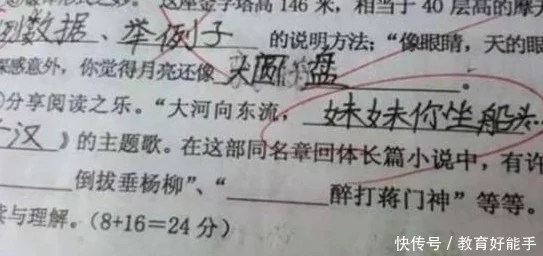 这座金字塔高146米，相当于40层高的摩天
列数据、举例子的说明方法；“像眼睛，天的眼
深感意外，你觉得月亮还像 大圆盘。
分享阅读之乐。“大河向东流，妹妹你坐船头
汉》的主题歌。在这部同名章回体长篇小说中，有许
倒拔垂杨柳”、“ 醉打蒋门神”等等。
读与理解。（8+16=24分）
快传号/教育好能手